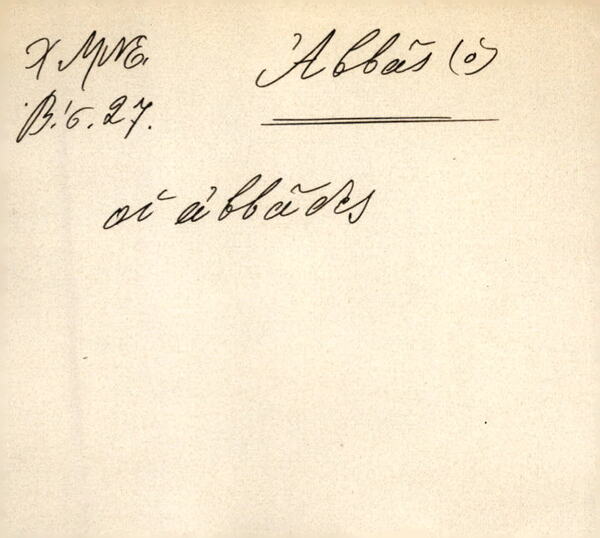 Χ ΜΝΕ. Ἀββᾶς (ὁ)
Β.΄σ. 27.
οἱ ἀββᾶδες